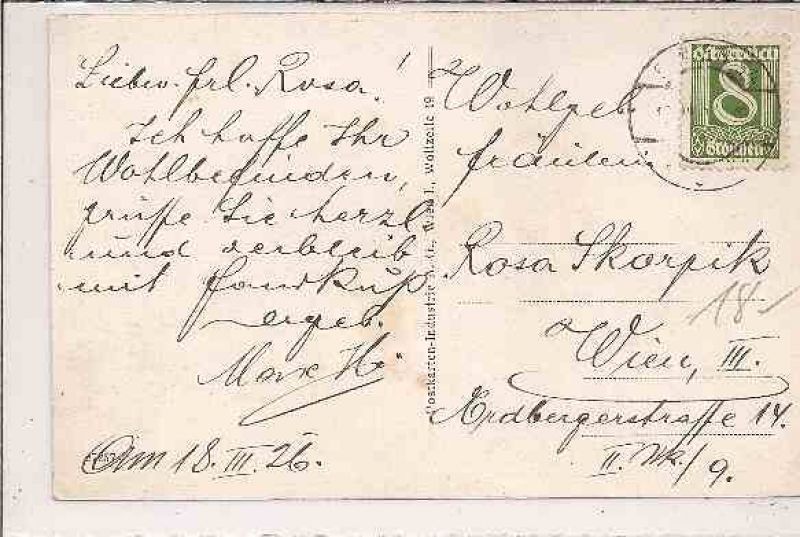 Liebw. Frl. Rosa!
Ich hoffe Ihr
Wohlbefinden,
grüsse Sie herzl
und verbleib
mit Handkuß
ergeb.
Am 18. III. 26.
Postkarten-Industrie A. G., Wien I, Wollzeile 19
Österreich
8
Groschen
Wohlgeb
Fräulein
Rosa Skorpik
18-
Wien, III.
Erdbergerstrasse 14.
II. /9.